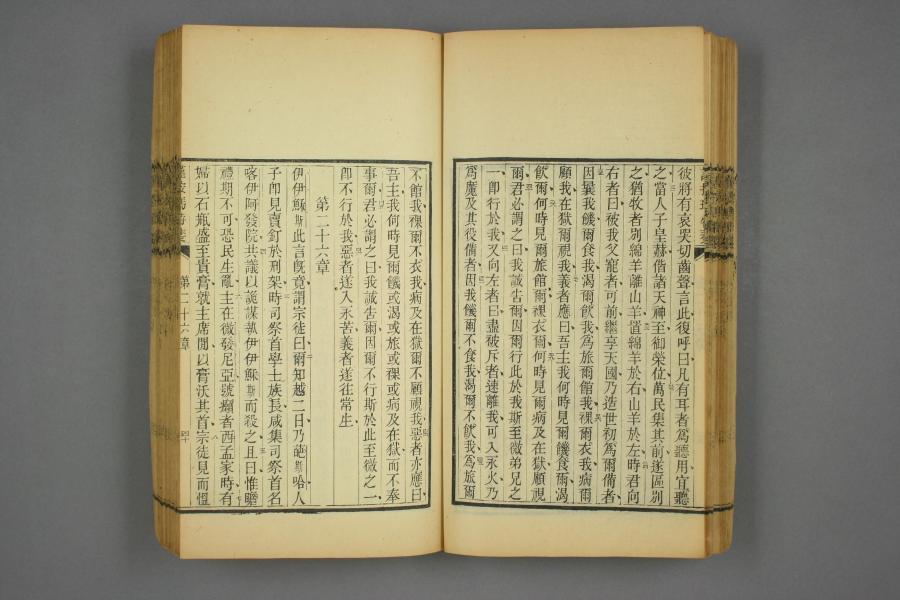 彼將有哀哭切齒聲言此復呼曰凡有耳者爲聽用宜聽
之當人子皇赫偕諸天神至御榮位萬民集其前遂區別
之猶牧者別綿羊離山羊置綿羊於右山羊於左時君向
右者曰被我父寵者可前繼享天國乃造世初爲爾備者
因曩我饑爾食我渴爾飮我爲旅爾館我裸爾衣我病爾
顧我在獄爾視我義者應曰吾主我何時見爾饑食爾渴
飮爾何時見爾旅館爾裸衣爾何時見爾病及在獄顧視
爾君必謂之曰我誠吿爾因爾行此於我斯至微弟兄之
一卽行於我又向左者曰盡被斥者速離我可入永火乃
爲魔及其役備者因我饑爾不食我渴爾不飮我爲旅爾
不館我裸爾不衣我病及在獄爾不顧視我惡者亦應曰
吾主我何時見爾饑或渴或旅或裸或病及在獄而不奉
事爾君必謂之曰我誠吿爾因爾不行斯於此至微之一
卽不行於我惡者遂入永苦義者遂往常生
第二十六章
伊伊穌斯此言旣竟謂宗徒曰爾知越二日乃葩斯哈人
子卽見賣釘於刑架時司祭首學士族長咸集司祭首名
喀伊阿發院共議以詭謀執伊伊穌斯而殺之且曰惟瞻
禮期不可恐民生亂主在微發尼亞號癩者西孟家時有
婦以石瓶盛至貴膏就主席間以膏沃其首宗徒見而慍
第二十六章